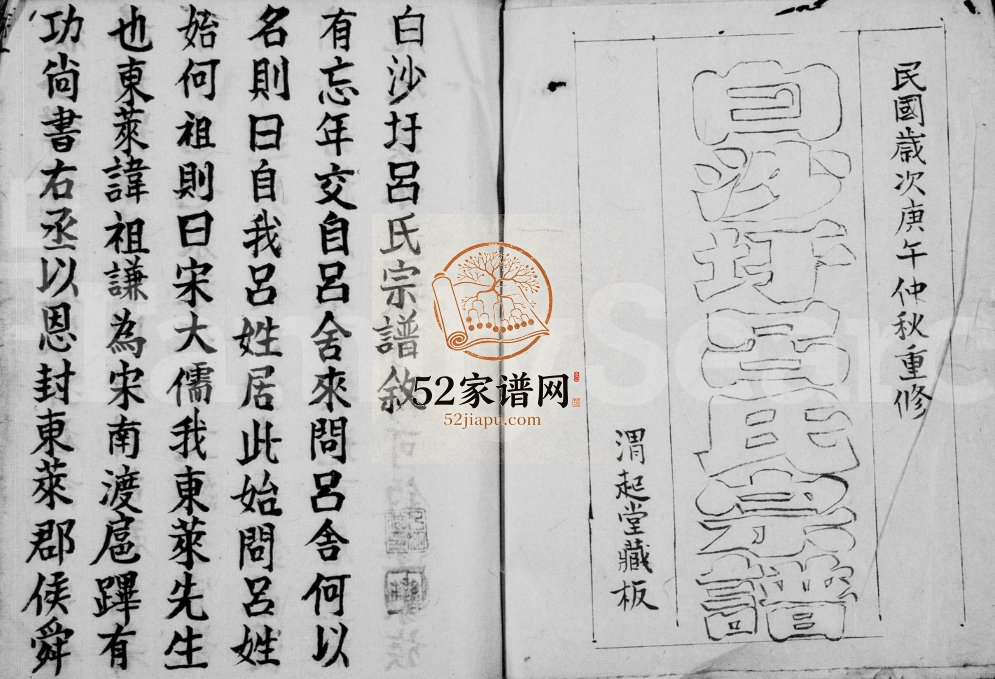 民國歲次庚午仲秋重修
白沙圩呂氏宗譜
渭起堂藏板
白沙圩呂氏宗譜敘
有忘年交自呂舍來問呂舍何以
名則曰自我呂姓居此始問呂姓
始何祖則曰宋大儒我東萊先生
也東萊諱祖謙為宋南渡扈蹕有
功尚書右丞以恩封東萊郡侯舜
52家谱网
52jiapu.com
FamilySearch